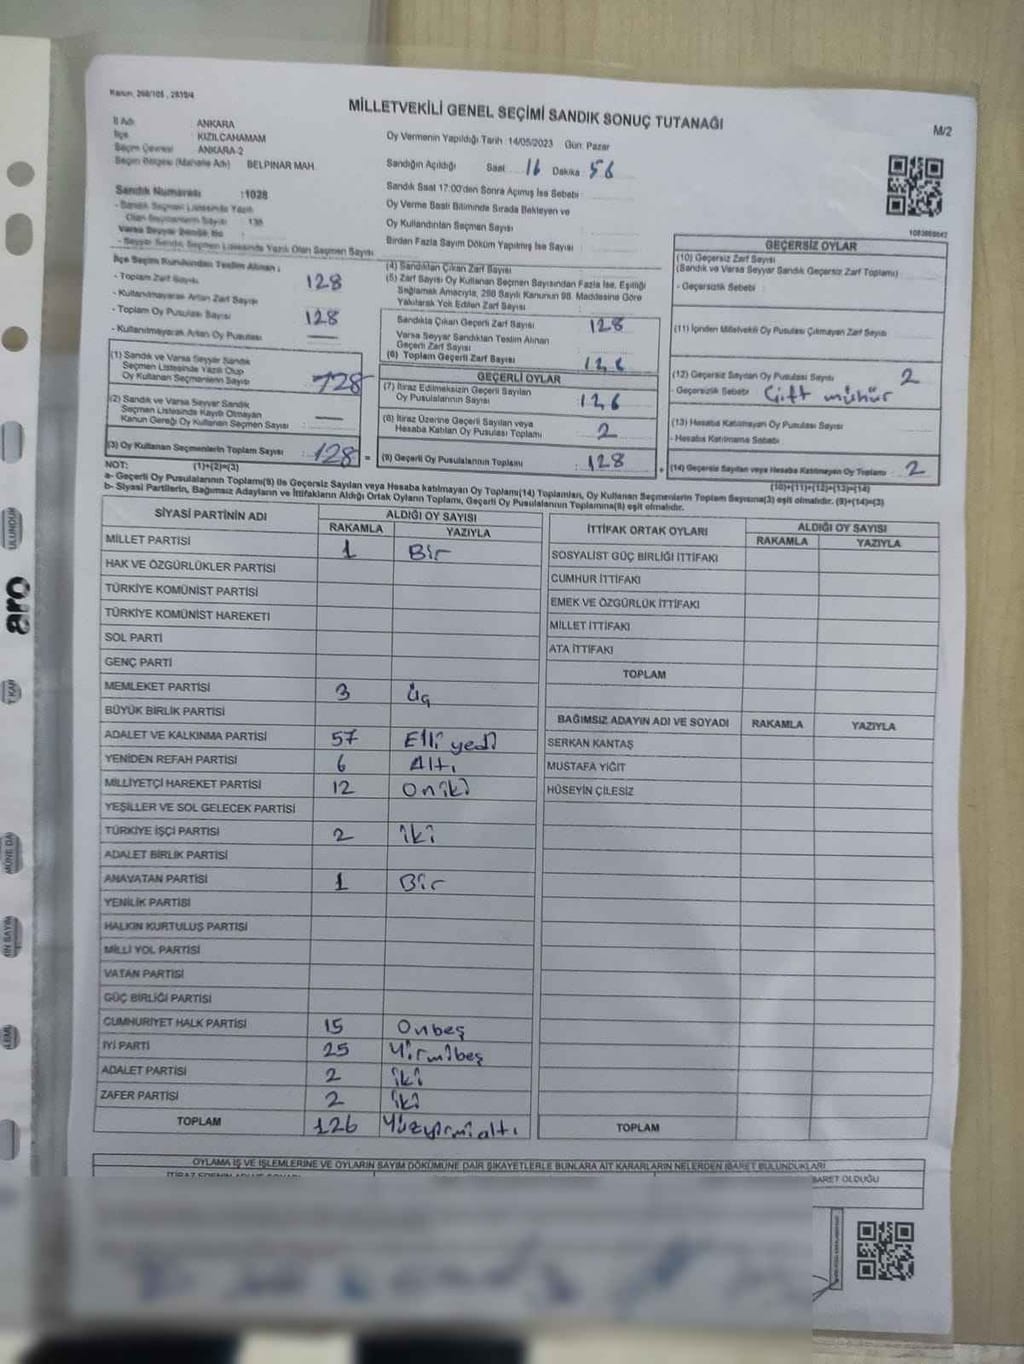 Kanun: 298/105 , 2839/4
MİLLETVEKİLİ GENEL SEÇİMİ SANDIK SONUÇ TUTANAĞI
M/2
İl Adı ANKARA
İlçe KIZILCAHAMAM
Seçim Çevresi ANKARA-2
Seçim Bölgesi (Mahalle Adı) BELPINAR MAH.
Oy Vermenin Yapıldığı Tarih :14/05/2023 Gün: Pazar
Sandığın Açıldığı Saat 16 Dakika 56
Sandık Saat 17:00'den Sonra Açılmış İse Sebebi
Oy Verme Saati Bitiminde Sırada Bekleyen ve
Oy Kullandırılan Seçmen Sayısı
Birden Fazla Sayım Döküm Yapılmış İse Sayısı
Sandık Numarası :1028
- Sandık Seçmen Listesinde Yazılı
Olan Seçmenlerin Sayısı
Varsa Seyyar Sandık No
- Seyyar Sandık Seçmen Listesinde Yazılı Olan Seçmen Sayısı
İlçe Seçim Kurulundan Teslim Alınan ;
- Toplam Zarf Sayısı 128
- Kullanılmayarak Artan Zarf Sayısı
- Toplam Oy Pusulası Sayısı 128
- Kullanılmayarak Artan Oy Pusulası —
(1) Sandık ve Varsa Seyyar Sandık
Seçmen Listesinde Yazılı Olup
Oy Kullanan Seçmenlerin Sayısı 128
(2) Sandık ve Varsa Seyyar Sandık
Seçmen Listesinde Kayıtlı Olmayan
Kanun Gereği Oy Kullanan Seçmen Sayısı : —
(3) Oy Kullanan Seçmenlerin Toplam Sayısı : 128 =
(1)+(2)=(3)
(4) Sandıktan Çıkan Zarf Sayısı
(5) Zarf Sayısı Oy Kullanan Seçmen Sayısından Fazla İse, Eşitliği
Sağlamak Amacıyla, 298 Sayılı Kanunun 98. Maddesine Göre
Yakılarak Yok Edilen Zarf Sayısı
Sandıkta Çıkan Geçerli Zarf Sayısı 128
Varsa Seyyar Sandıktan Teslim Alınan
Geçerli Zarf Sayısı
(6) Toplam Geçerli Zarf Sayısı 126
GEÇERLİ OYLAR
(7) İtiraz Edilmeksizin Geçerli Sayılan
Oy Pusulalarının Sayısı 126
(8) İtiraz Üzerine Geçerli Sayılan veya
Hesaba Katılan Oy Pusulası Toplamı 2
(9) Geçerli Oy Pusulalarının Toplamı : 128 +
GEÇERSİZ OYLAR
(10) Geçersiz Zarf Sayısı
(Sandık ve Varsa Seyyar Sandık Geçersiz Zarf Toplamı)
- Geçersizlik Sebebi
(11) İçinden Milletvekili Oy Pusulası Çıkmayan Zarf Sayısı
(12) Geçersiz Sayılan Oy Pusulası Sayısı 2
- Geçersizlik Sebebi Çift mühür
(13) Hesaba Katılmayan Oy Pusulası Sayısı
- Hesaba Katılmama Sebebi
(14) Geçersiz Sayılan veya Hesaba Katılmayan Oy Toplamı 2
(10)+(11)+(12)+(13)=(14)
NOT:
a- Geçerli Oy Pusulalarının Toplamı(9) ile Geçersiz Sayılan veya Hesaba katılmayan Oy Toplamı(14) Toplamları, Oy Kullanan Seçmenlerin Toplam Sayısına(3) eşit olmalıdır. (9)+(14)=(3)
b- Siyasi Partilerin, Bağımsız Adayların ve İttifakların Aldığı Ortak Oyların Toplamı, Geçerli Oy Pusulalarının Toplamına(9) eşit olmalıdır.
SİYASİ PARTİNİN ADI ALDIĞI OY SAYISI
RAKAMLA YAZIYLA
MİLLET PARTİSİ 1 Bir
HAK VE ÖZGÜRLÜKLER PARTİSİ
TÜRKİYE KOMÜNİST PARTİSİ
TÜRKİYE KOMÜNİST HAREKETİ
SOL PARTİ
GENÇ PARTİ
MEMLEKET PARTİSİ 3 Üç
BÜYÜK BİRLİK PARTİSİ
ADALET VE KALKINMA PARTİSİ 57 Elli yedi
YENİDEN REFAH PARTİSİ 6 Altı
MİLLİYETÇİ HAREKET PARTİSİ 12 oniki
YEŞİLLER VE SOL GELECEK PARTİSİ
TÜRKİYE İŞÇİ PARTİSİ 2 iki
ADALET BİRLİK PARTİSİ
ANAVATAN PARTİSİ 1 Bir
YENİLİK PARTİSİ
HALKIN KURTULUŞ PARTİSİ
MİLLİ YOL PARTİSİ
VATAN PARTİSİ
GÜÇ BİRLİĞİ PARTİSİ
CUMHURİYET HALK PARTİSİ 15 Onbeş
İYİ PARTİ 25 Yirmibeş
ADALET PARTİSİ 2 iki
ZAFER PARTİSİ 2 iki
TOPLAM 126 Yüzyirmialtı
İTTİFAK ORTAK OYLARI ALDIĞI OY SAYISI
RAKAMLA YAZIYLA
SOSYALİST GÜÇ BİRLİĞİ İTTİFAKI
CUMHUR İTTİFAKI
EMEK VE ÖZGÜRLÜK İTTİFAKI
MİLLET İTTİFAKI
ATA İTTİFAKI
TOPLAM
BAĞIMSIZ ADAYIN ADI VE SOYADI RAKAMLA YAZIYLA
SERKAN KANTAŞ
MUSTAFA YİĞİT
HÜSEYİN ÇİLESİZ
TOPLAM
OYLAMA İŞ VE İŞLEMLERİNE VE OYLARIN SAYIM DÖKÜMÜNE DAİR ŞİKAYETLERLE BUNLARA AİT KARARLARIN NELERDEN İBARET BULUNDUKLARI
aro